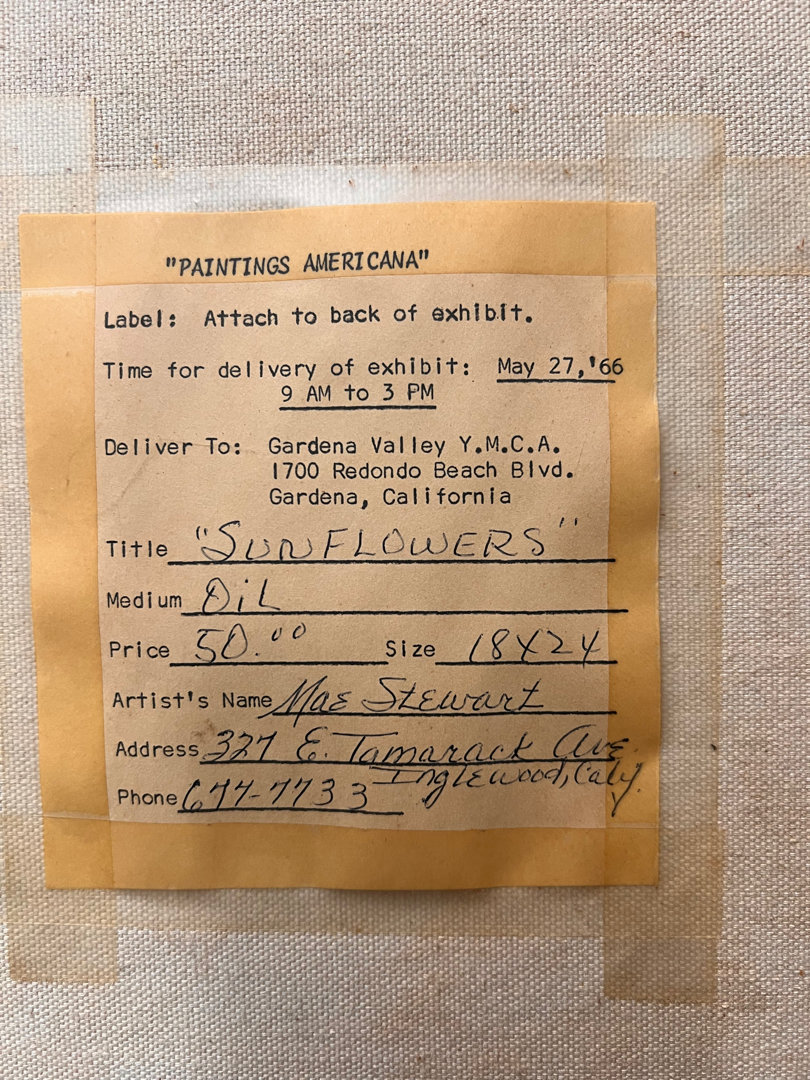 "PAINTINGS AMERICANA"
Label: Attach to back of exhibit.
Time for delivery of exhibit: May 27,'66
9 AM to 3 PM
Deliver To: Gardena Valley Y.M.C.A.
1700 Redondo Beach Blvd.
Gardena, California
Title "SUNFLOWERS"
Medium OiL
Price 50.00 Size 18X24
Artist's Name Mae Stewart
Address 327 E. Tamarack Ave.
Inglewood, Calif.
Phone 677-7733